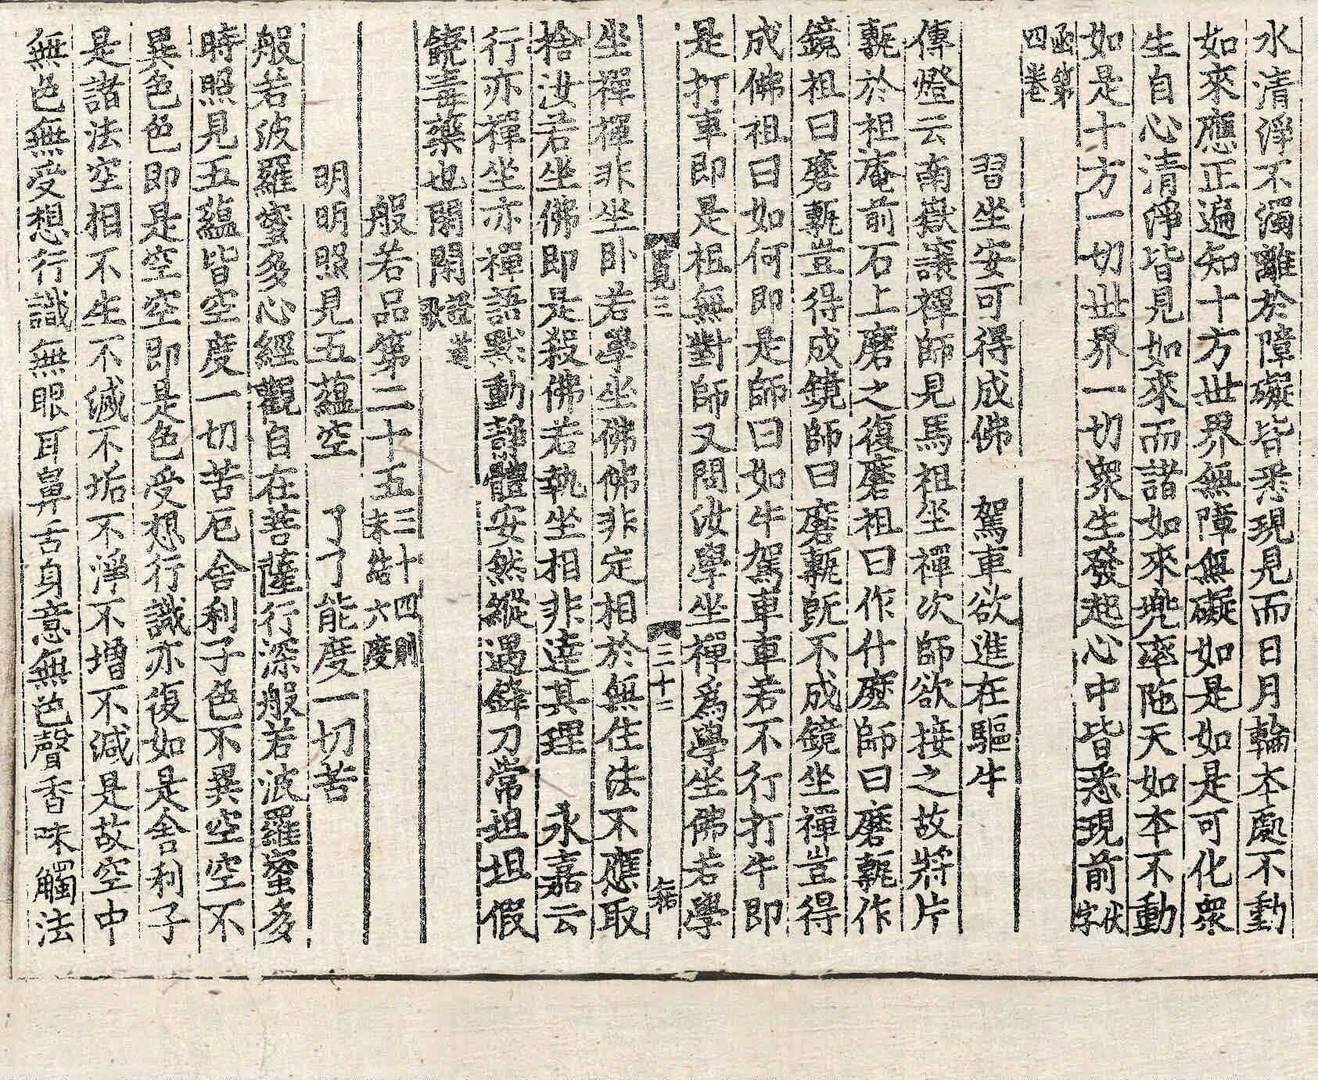 水清淨不濁離於障礙皆悉現見而日月輪本處不動
如來應正遍知十方世界無障無礙如是如是可化衆
生自心清淨皆見如來而諸如來兠率陁天如本不動
如是十方一切世界一切衆生發起心中皆悉現前伏字
函第四卷
習坐安可得成佛 駕車欲進在驅牛
傳燈云南嶽讓禪師見馬祖坐禪次師欲接之故將片
甎於祖庵前石上磨之復磨祖曰作什麽師曰磨甎作
鏡祖曰磨甎豈得成鏡師曰磨甎旣不成鏡坐禪豈得
成佛祖曰如何即是師曰如牛駕車車若不行打牛即
是打車即是祖無對師又問汝學坐禪爲學坐佛若學
覓三 二十二
坐禪禪非坐卧若學坐佛佛非定相於無住法不應取
捨汝若坐佛即是殺佛若執坐相非達其理 永嘉云
行亦禪坐亦禪語默動靜體安然縱遇鋒刀常坦坦假
饒毒藥也閑閑證道歌
般若品第二十五三十四則末結六度
明明照見五蘊空 了了能度一切苦
般若波羅蜜多心經觀自在菩薩行深般若波羅蜜多
時照見五蘊皆空度一切苦厄舍利子色不異空空不
異色色即是空空即是色受想行識亦復如是舍利子
是諸法空相不生不滅不垢不淨不增不減是故空中
無色無受想行識無眼耳鼻舌身意無色聲香味觸法